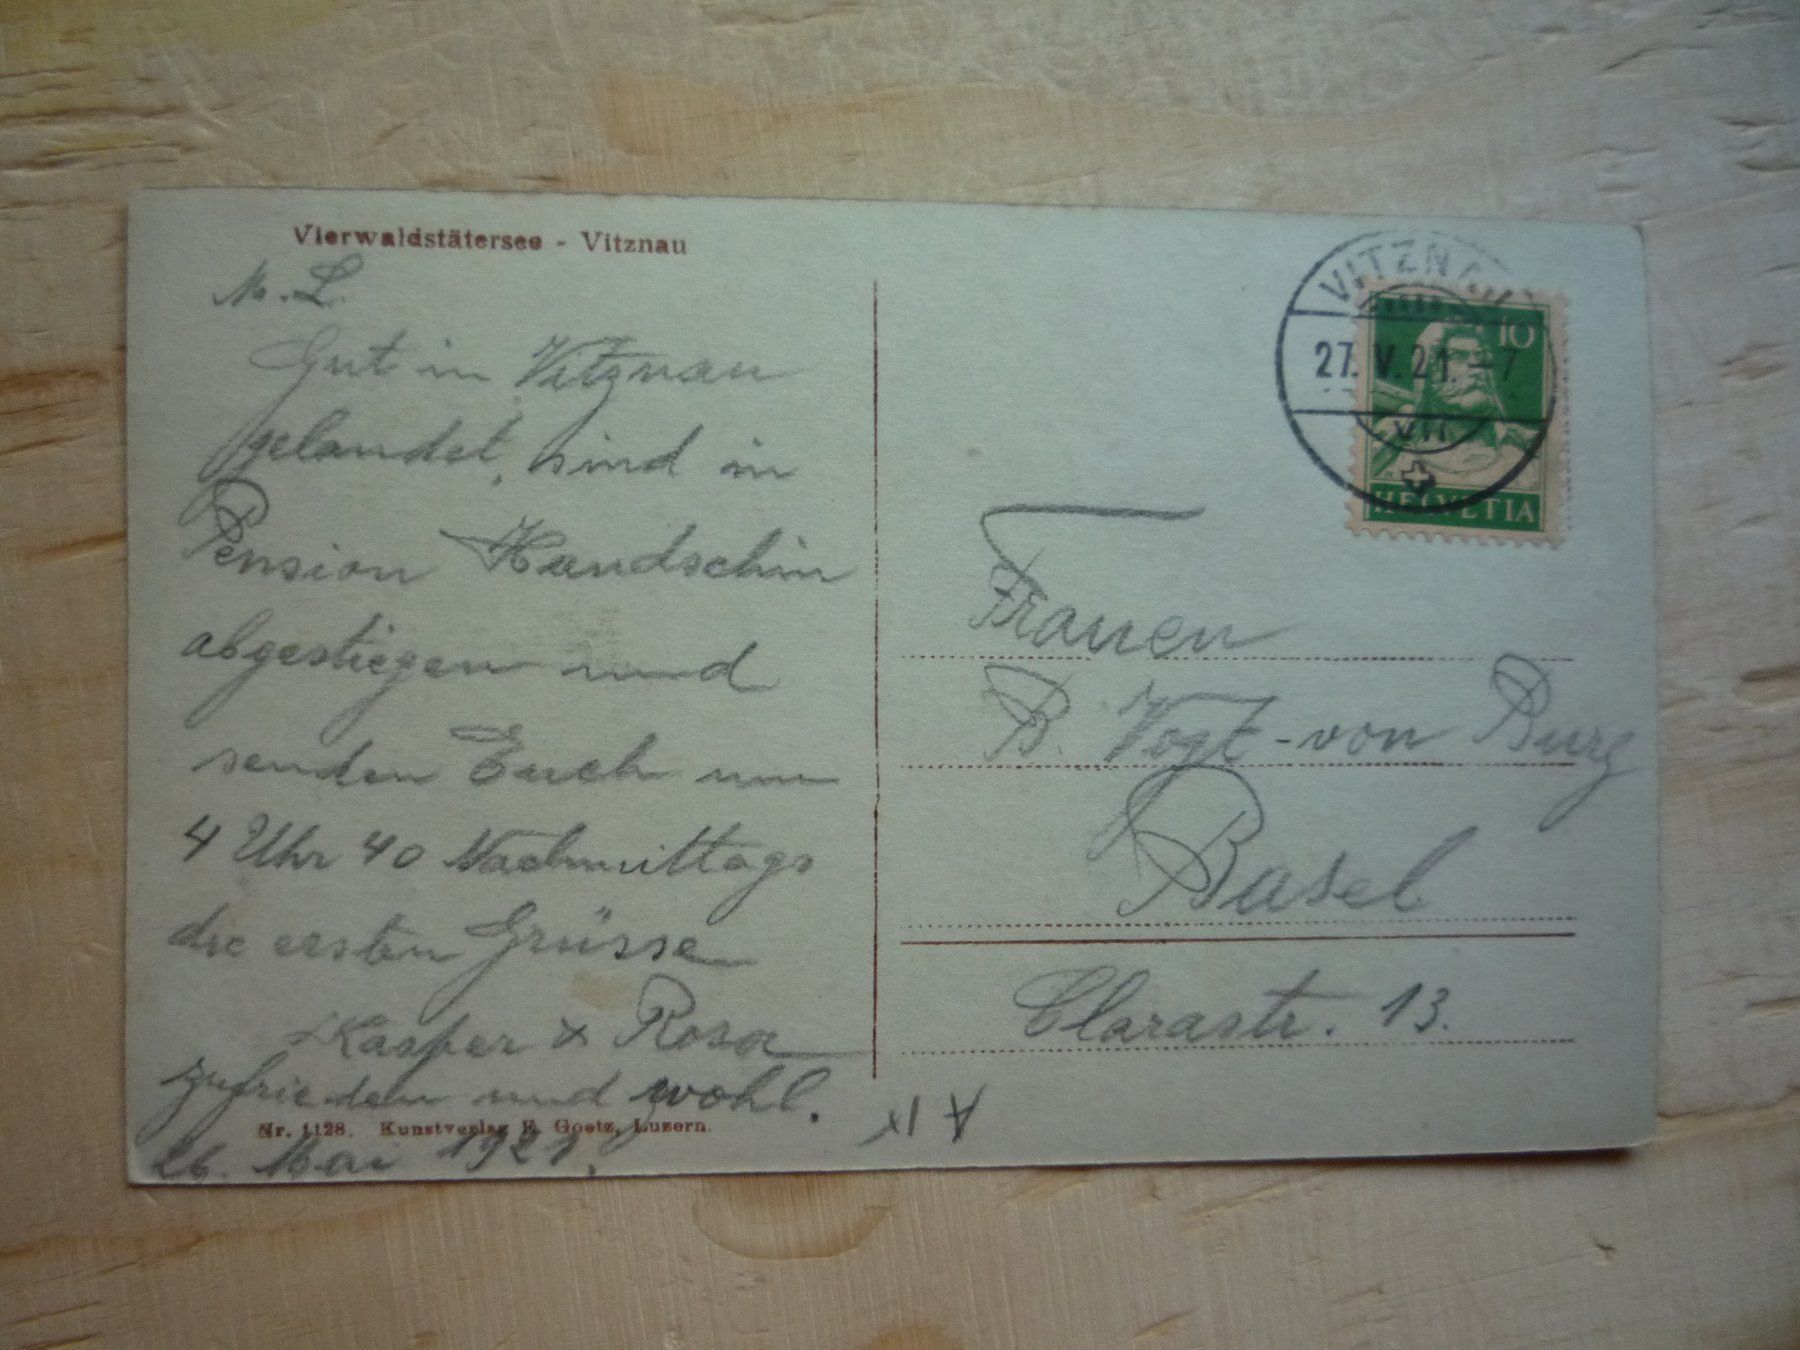 Vierwaldstätersee - Vitznau
M. L.
Gut in Vitznau
gelandet, sind in
Pension Handschin
abgestiegen und
senden Euch um
4 Uhr 40 Nachmittags
die ersten Grüsse
Kasper & Rosa
zufrieden und wohl.
Nr. 1128. Kunstverlag E. Goetz, Luzern.
26. Mai 1921.
VITZNAU
27. V. 21. – 7
VII
10
HELVETIA
Frauen
B. Vogt-von Burg
Basel
Clarastr. 13.